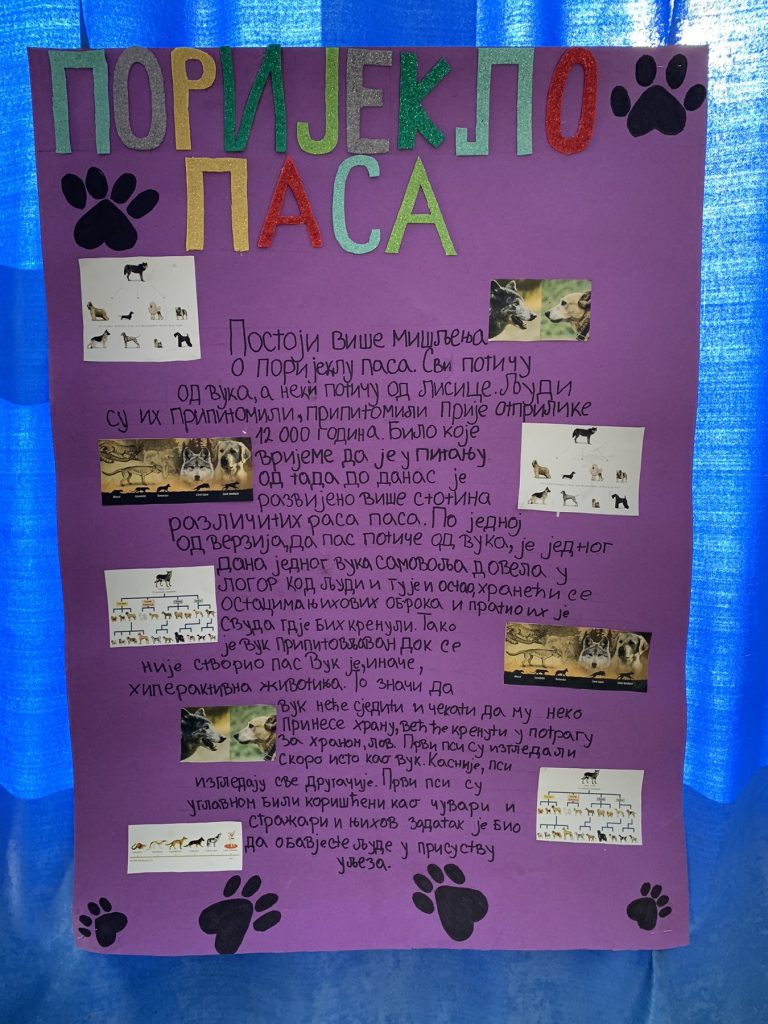 ПОРИЈЕКЛО
ПАСА
Постоји више мишљења
о поријеклу паса. Сви потичу
од вука, а неки потичу од лисице. Људи
су их припитомили, припитомили прије отприлике
12 000 година. Било које
вријеме да је у питању
од тада до данас је
развијено више стотина
различитих раса паса. По једној
од верзија, да пас потиче од вука, је једног
дана једног вука самовоља довела у
логор код људи и ту је и остао, хранећи се
остацима њихових оброка и пратио их је
свуда гдје бих кренули. Тако
је вук припитовљаван док се
није створио пас Вук је, иначе,
хиперактивна животиња. То значи да
вук неће сједити и чекати да му неко
принесе храну, већ ће кренути у потрагу
за храном, лов. Први пси су изгледали
скоро исто као вук. Касније, пси
изгледају све другачије. Први пси су
углавном били коришћени као чувари и
стражари и њихов задатак је био
да обавјесте људе у присуству
уљеза.